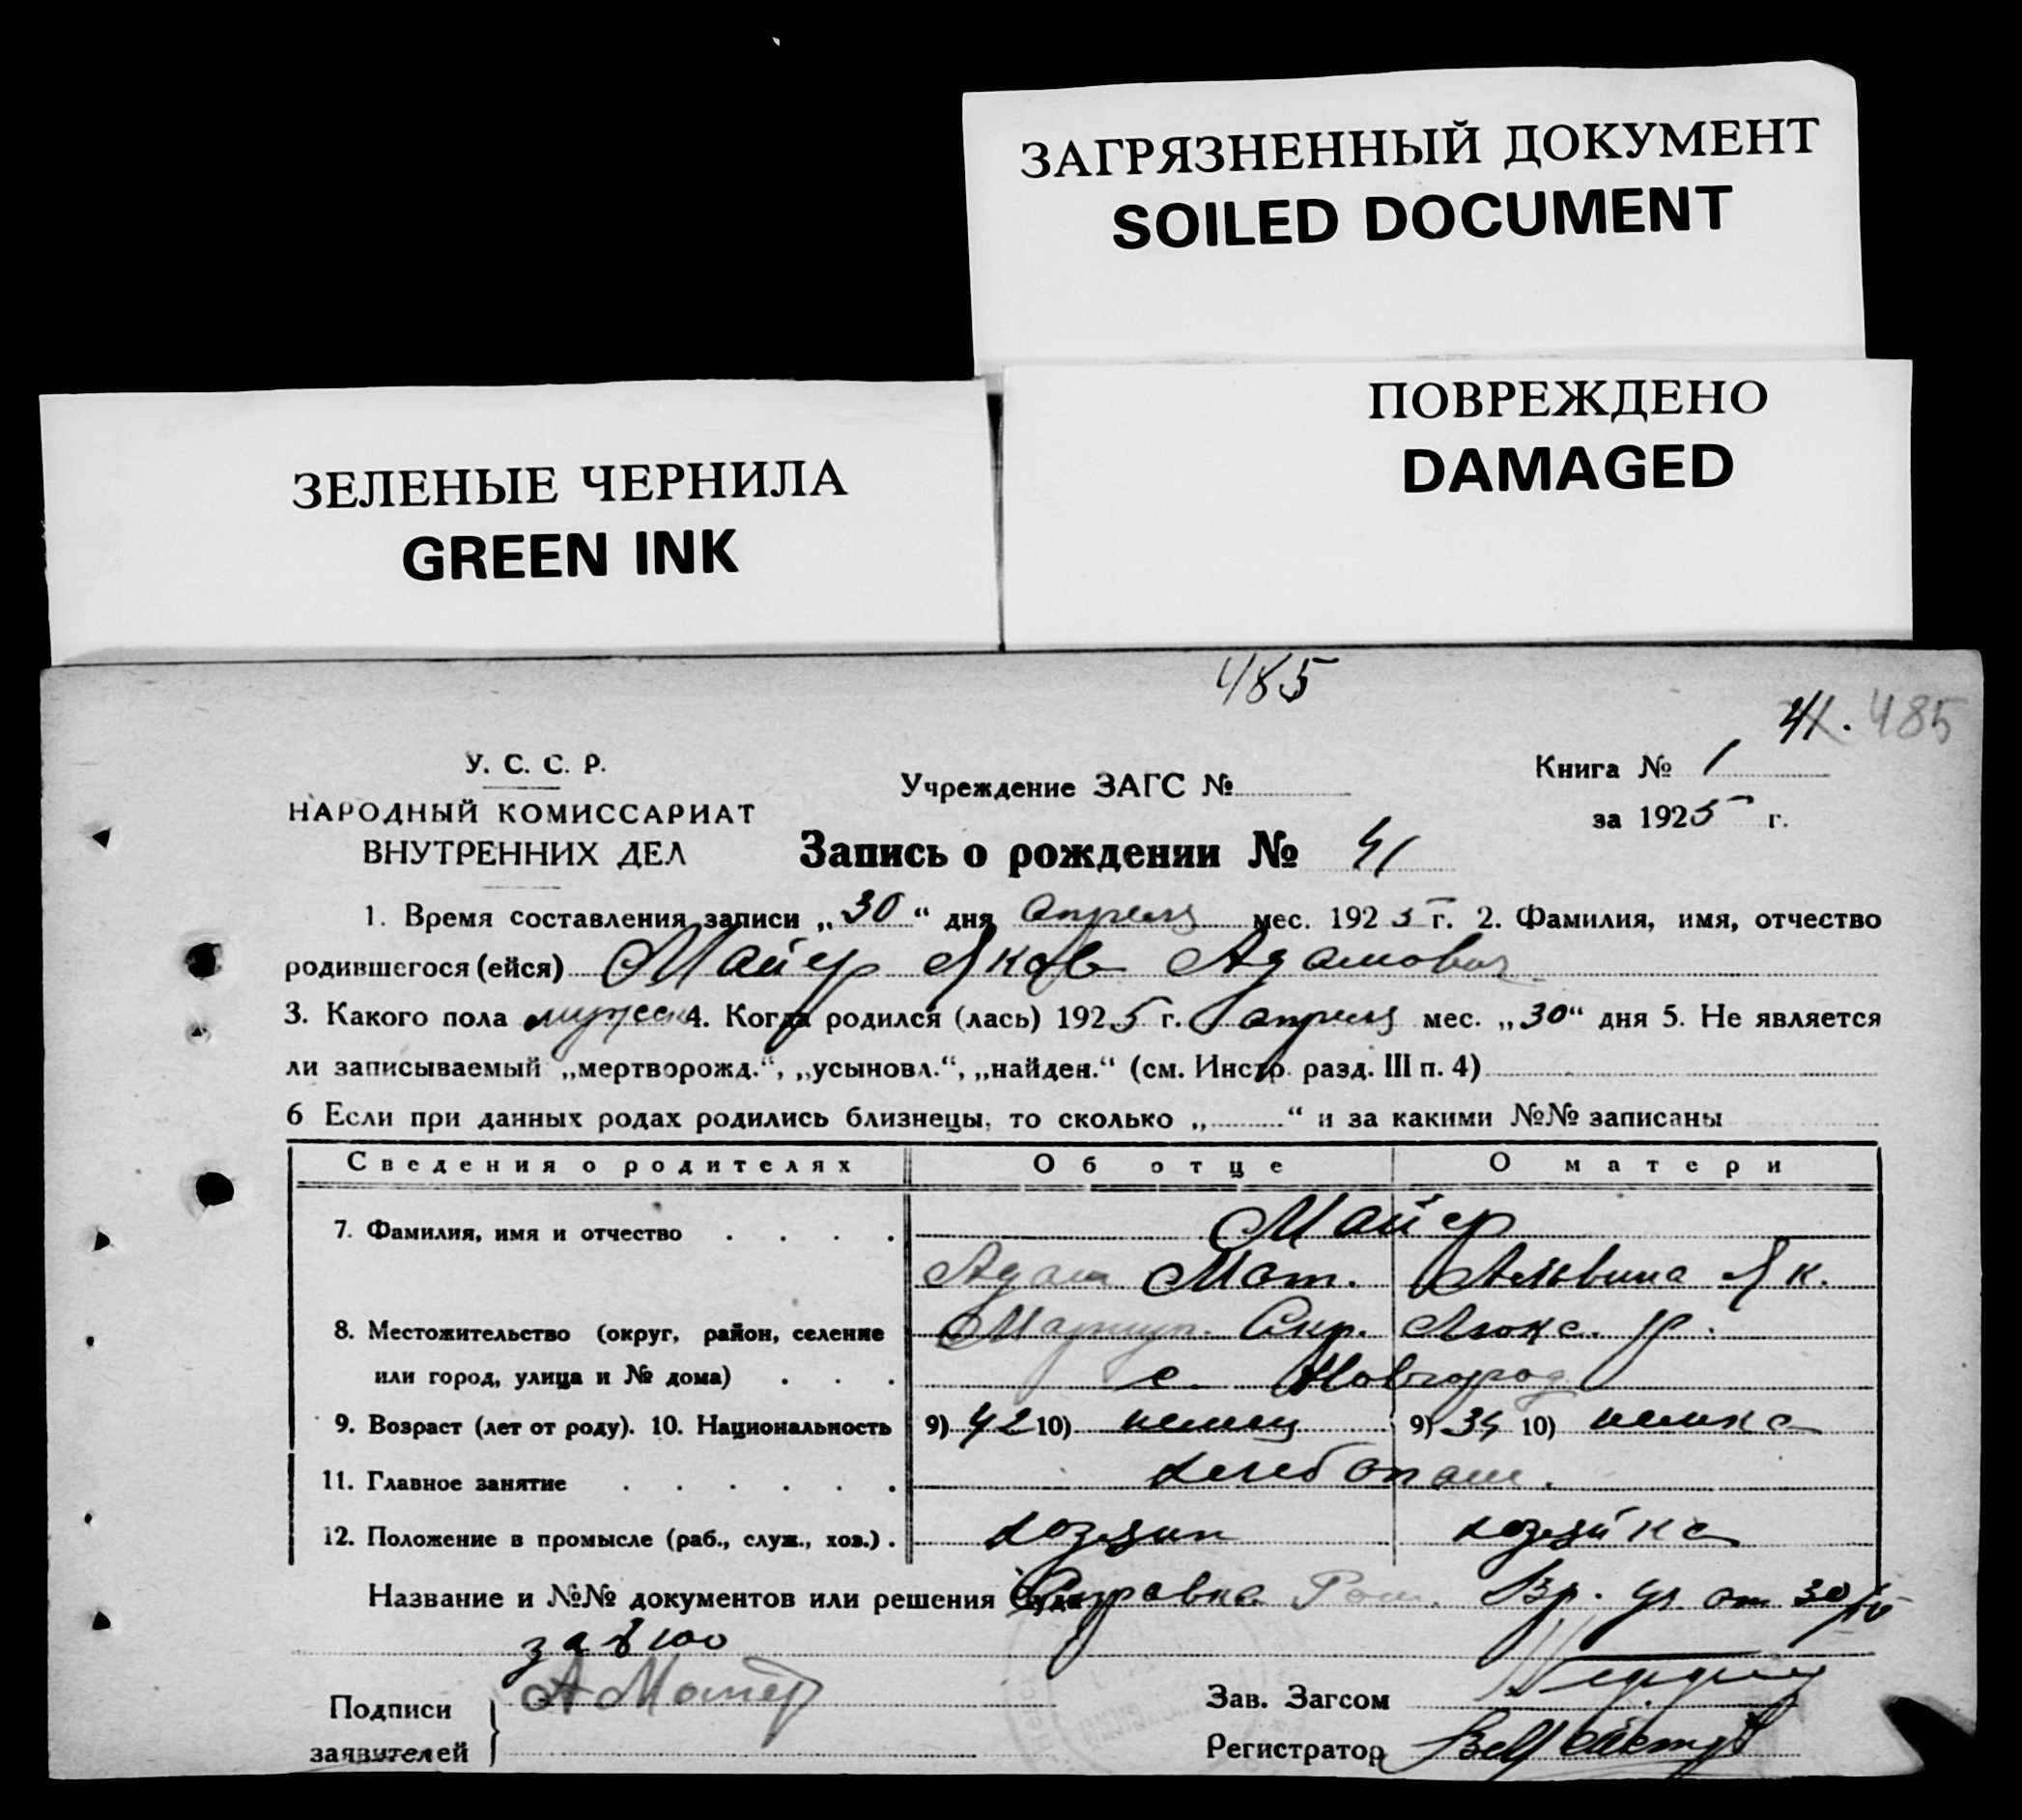 ЗАГРЯЗНЕННЫЙ ДОКУМЕНТ
SOILED DOCUMENT
ПОВРЕЖДЕНО
DAMAGED
ЗЕЛЕНЫЕ ЧЕРНИЛА
GREEN INK
485
41. 485
У. С. С. Р.
НАРОДНЫЙ КОМИССАРИАТ
ВНУТРЕННИХ ДЕЛ
Учреждение ЗАГС №
Книга № 1
за 1925 г.
Запись о рождении № 41
1. Время составления записи „30“ дня апреля мес. 1925 г. 2. Фамилия, имя, отчество
родившегося (ейся) Майер Яков Адамович
3. Какого пола мужеск 4. Когда родился (лась) 1925 г. апреля мес. „30“ дня 5. Не является
ли записываемый „мертворожд.“, „усыновл.“, „найден.“ (см. Инстр. разд. III п. 4)
6 Если при данных родах родились близнецы, то сколько „ “ и за какими №№ записаны
Сведения о родителях Об отце О матери
7. Фамилия, имя и отчество Майер
Адам Мат. Альвина Як.
8. Местожительство (округ, район, селение Мариуп. Окр. Люкс. р.
или город, улица и № дома) с. Новгород
9. Возраст (лет от роду). 10. Национальность 9) 42 10) немец 9) 34 10) немка
11. Главное занятие хлебопаш.
12. Положение в промысле (раб., служ., хоз.) хозяин хозяйка
Название и №№ документов или решения Суда Справка Вр. уч. от 30/IV
за № 100
Подписи
заявителей
А Майер
Зав. Загсом
Регистратор